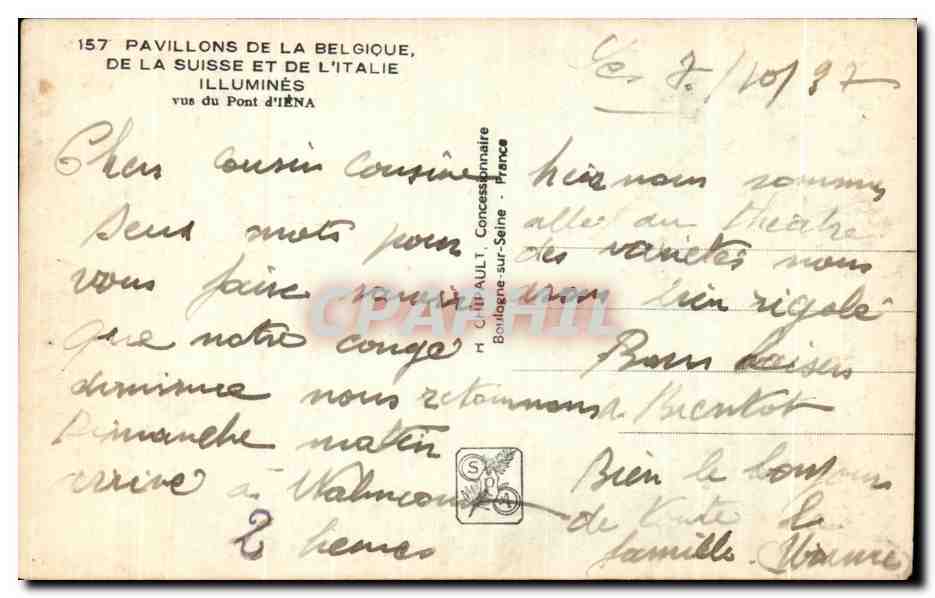 157 PAVILLONS DE LA BELGIQUE,
DE LA SUISSE ET DE L'ITALIE
ILLUMINÉS
vus du Pont d'IÉNA
Le 7/10/37
Chers cousin cousine
Deux mots pour
vous faire savoir
que notre conge
diminue nous retournons
Dimanche matin
arrive a
2 heures
H CHIPAULT, Concessionnaire
Boulogne-sur-Seine - France
SPA
hier nous sommes
alle au théatre
des varietés nous
avons bien rigolé
Bons baisers
a Bientot
Bien le bonjour
de toute la
famille
CPAPHIL